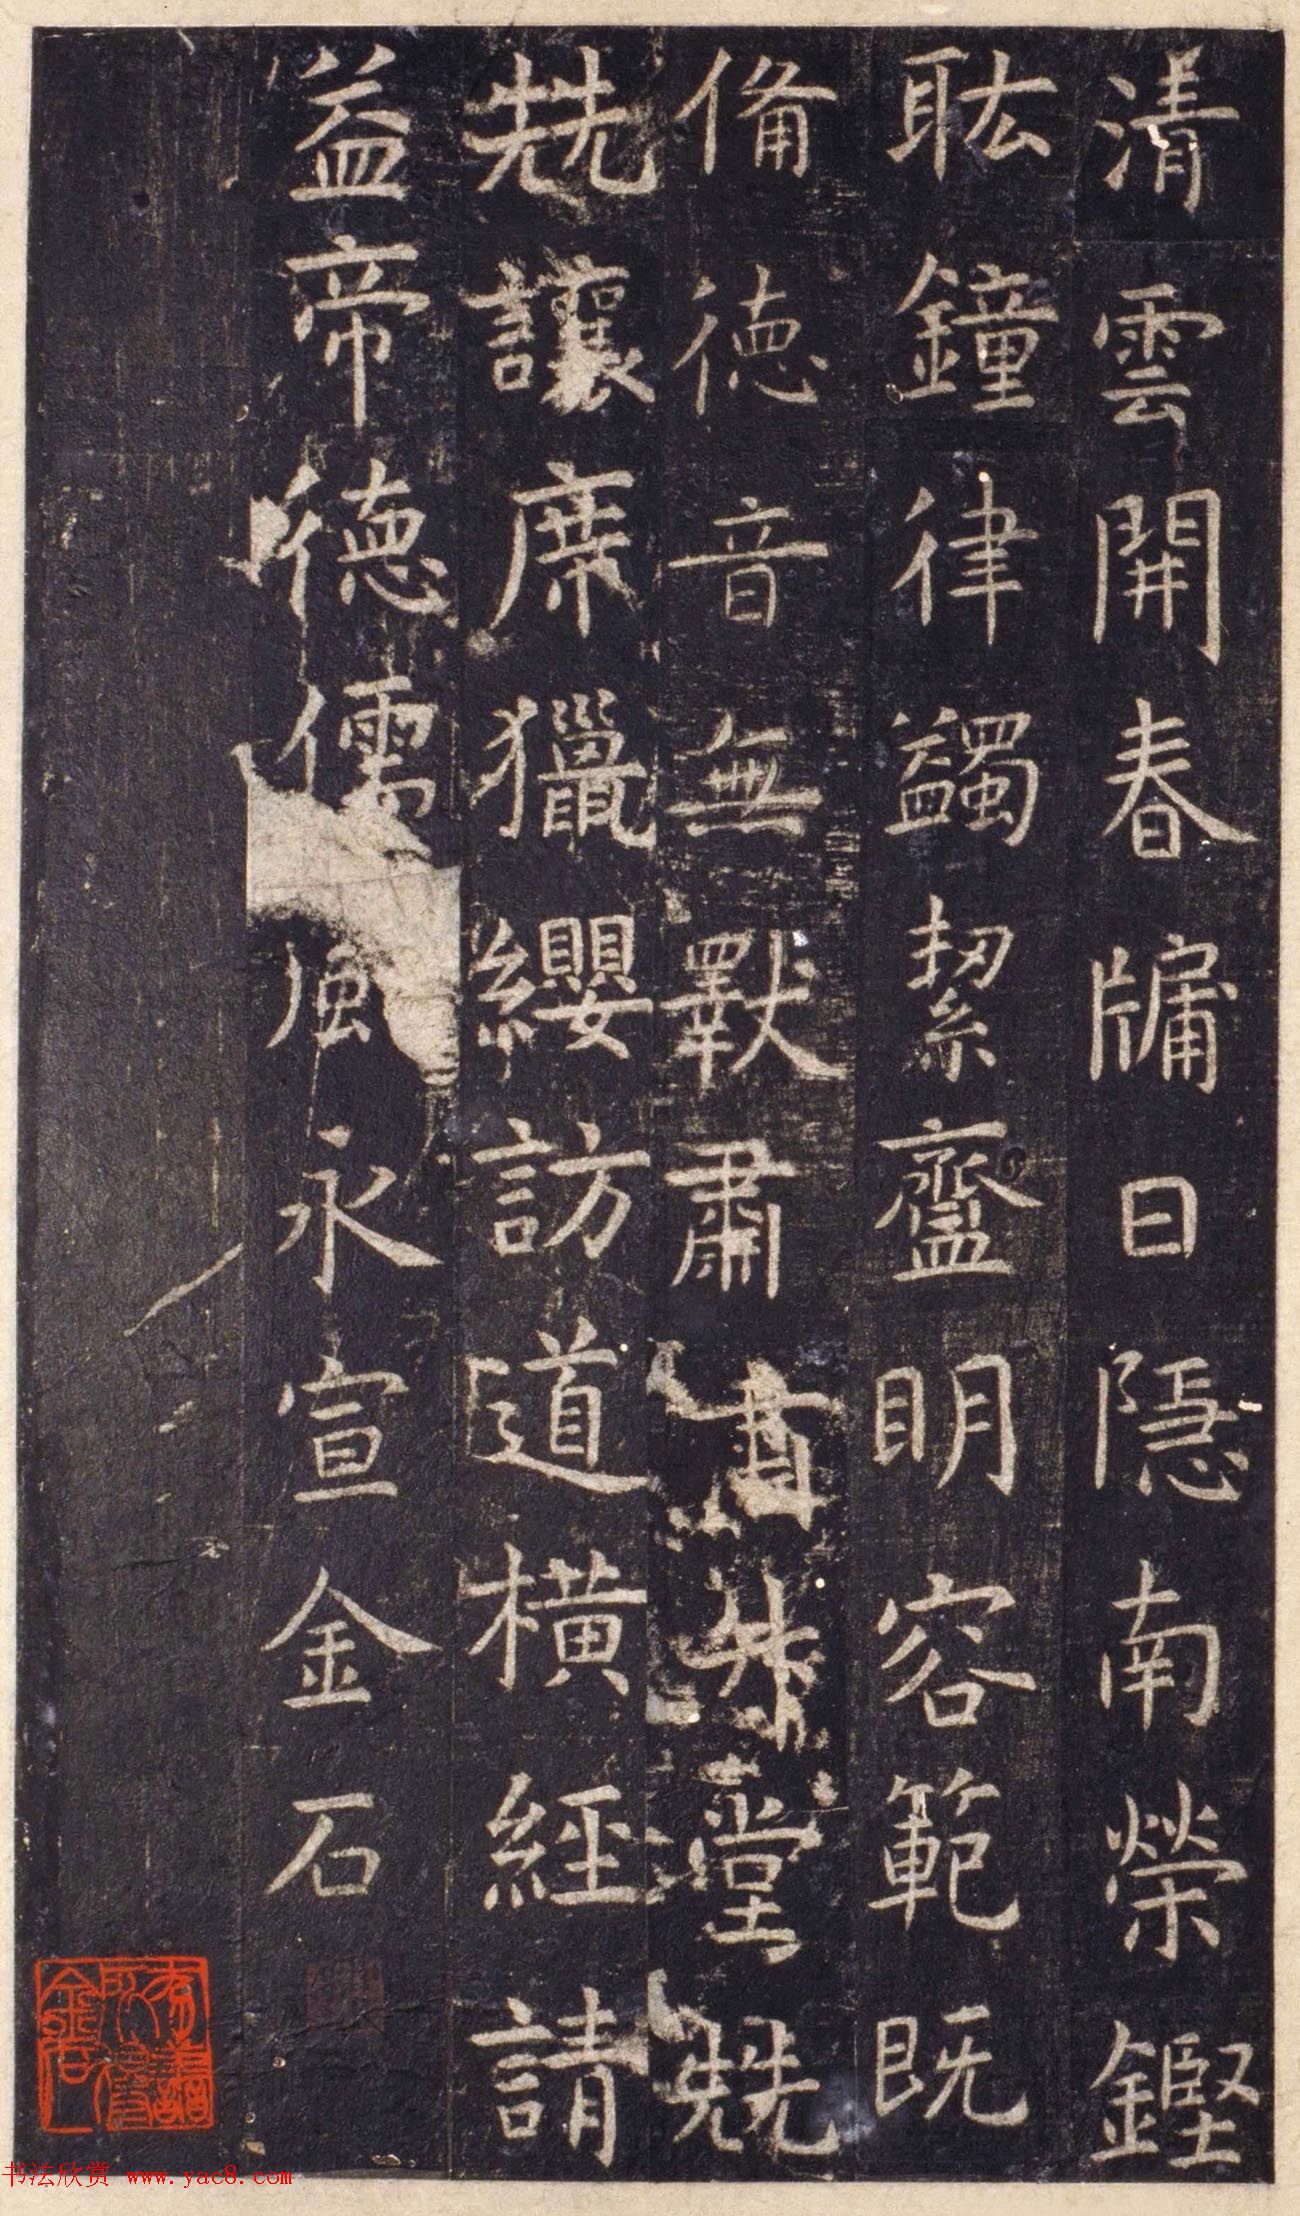 清雲開春牖日隱南榮鏗
耾鐘律蠲絜齍明容範既
備德音無斁肅升堂兟
兟讓席獵纓訪道橫經請
益帝德儒風永宣金石
书法欣赏 www.yac8.com